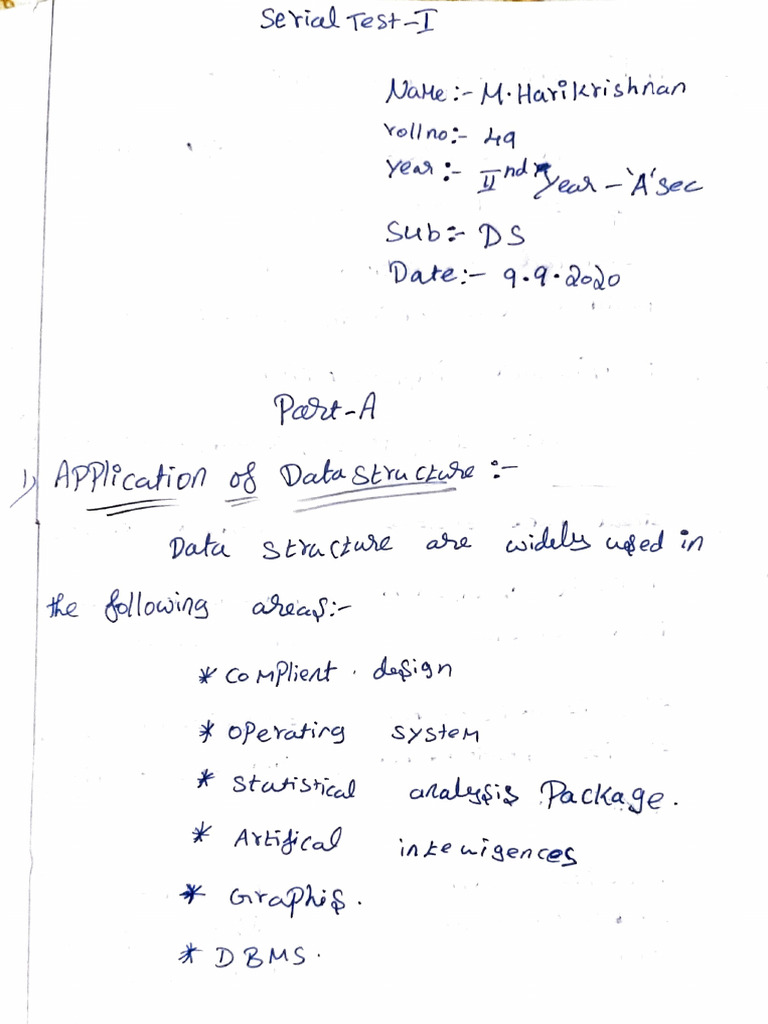 Serial Test-I
Name:- M.Harikrishnan
rollno:- 49
Year:- IInd Year - 'A' sec
Sub:- DS
Date:- 9.9.2020
Part-A
1) Application of Data Structure:-
Data structure are widely used in
the following areas:-
* Complient. design
* Operating system
* Statistical analysis Package.
* Artifical intelligences
* Graphis.
* DBMS.